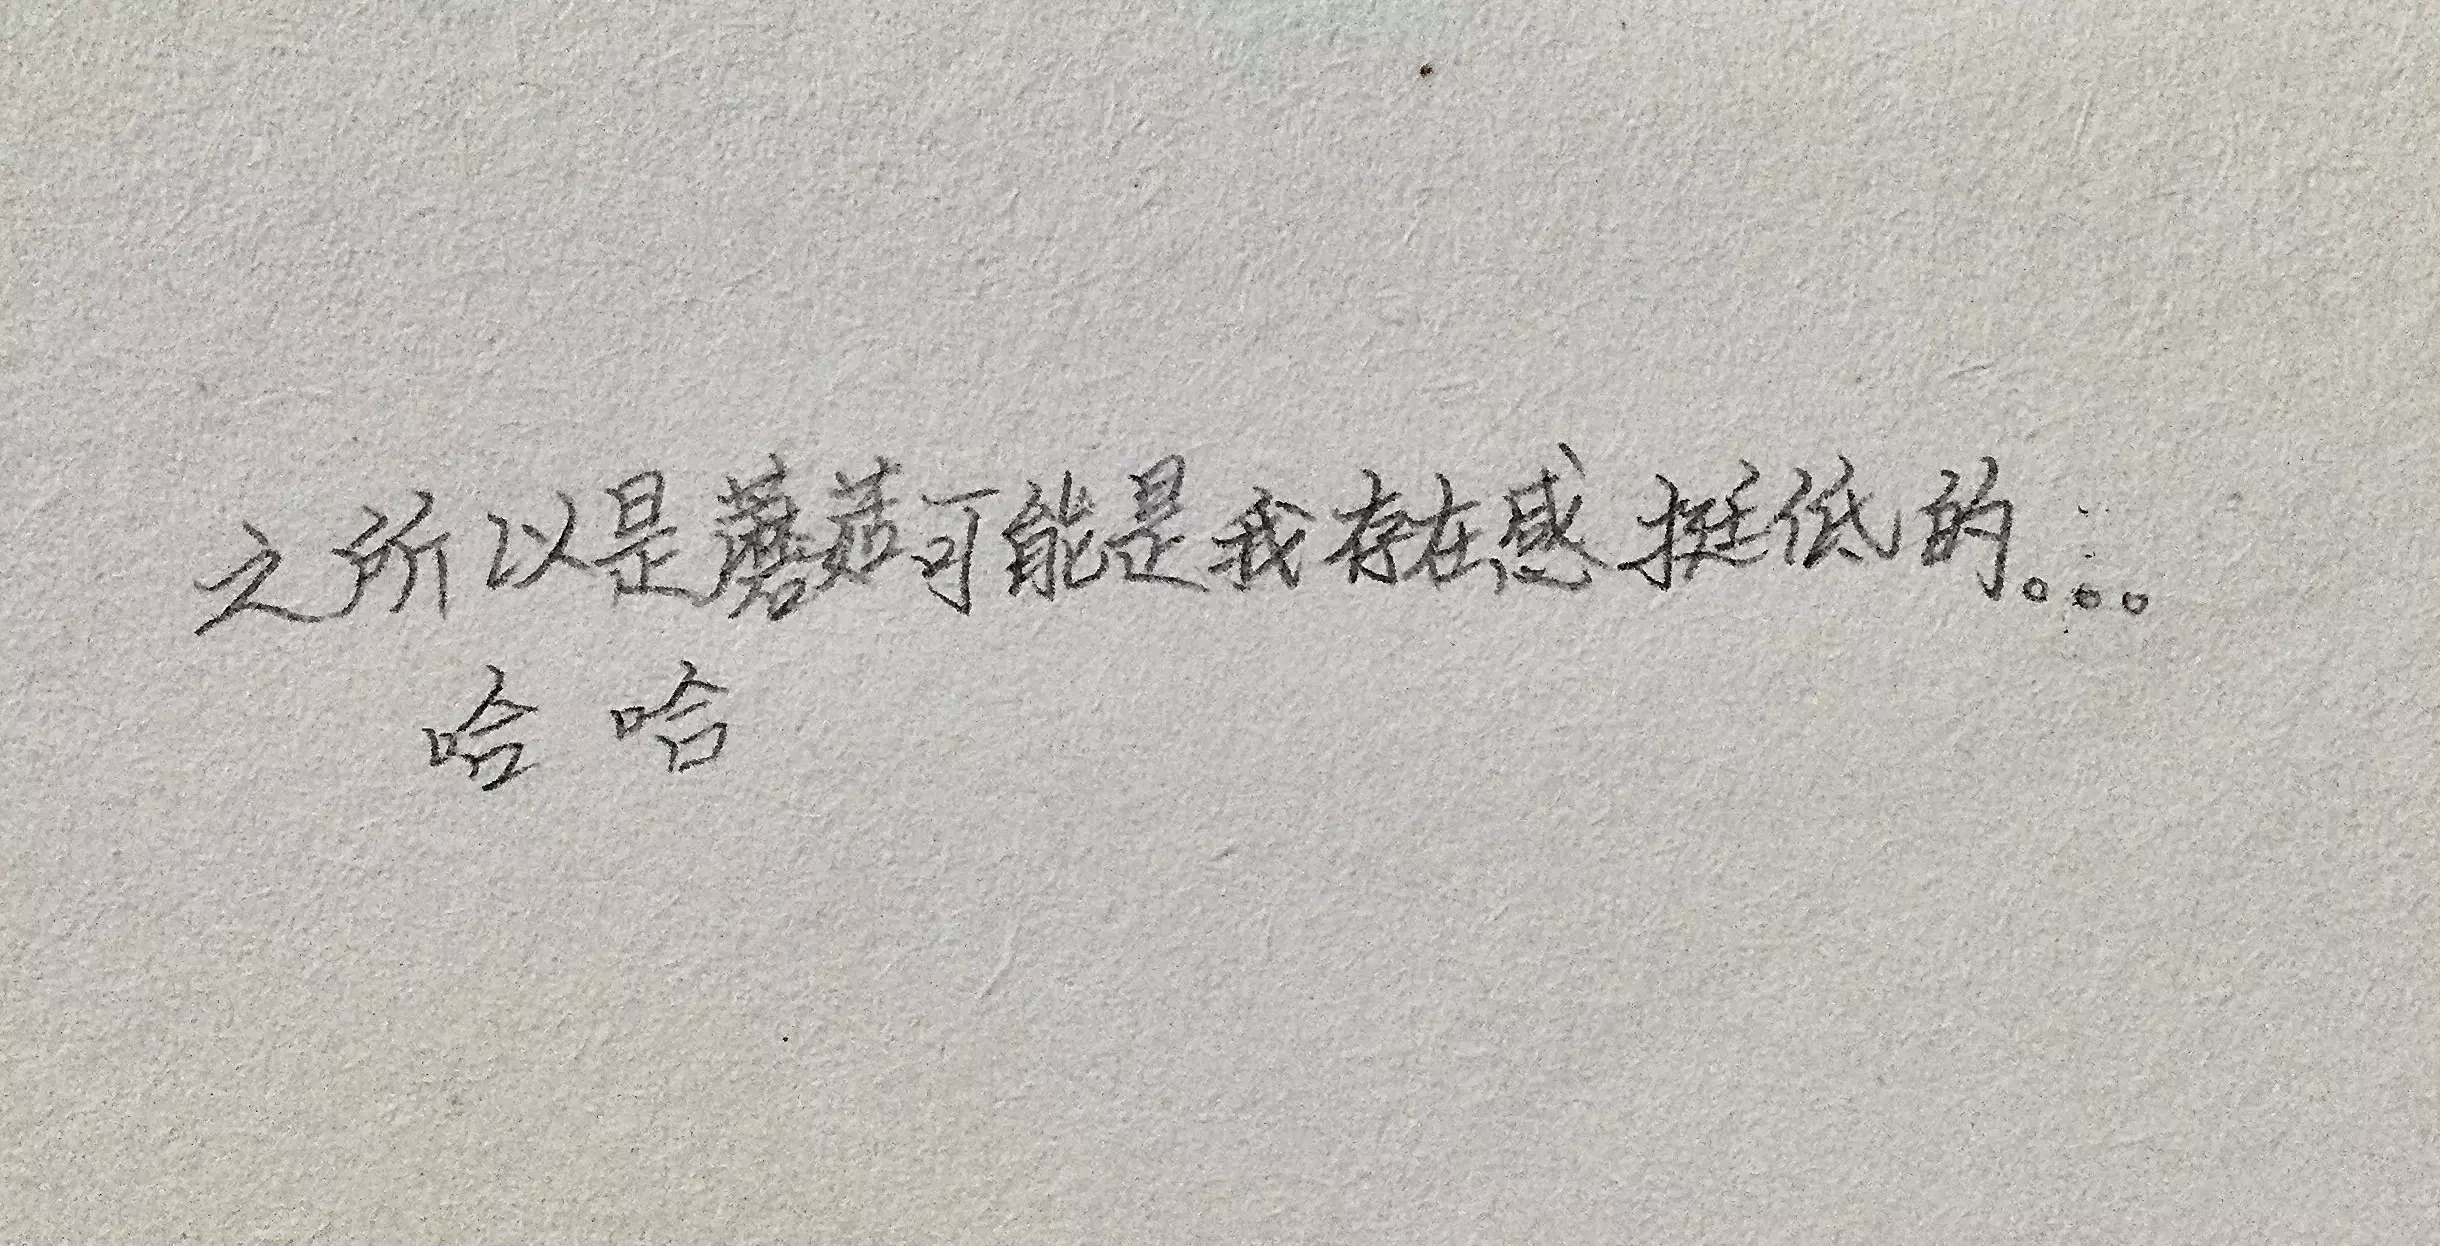 之所以是蘑菇可能是我存在感挺低的。。。
哈哈